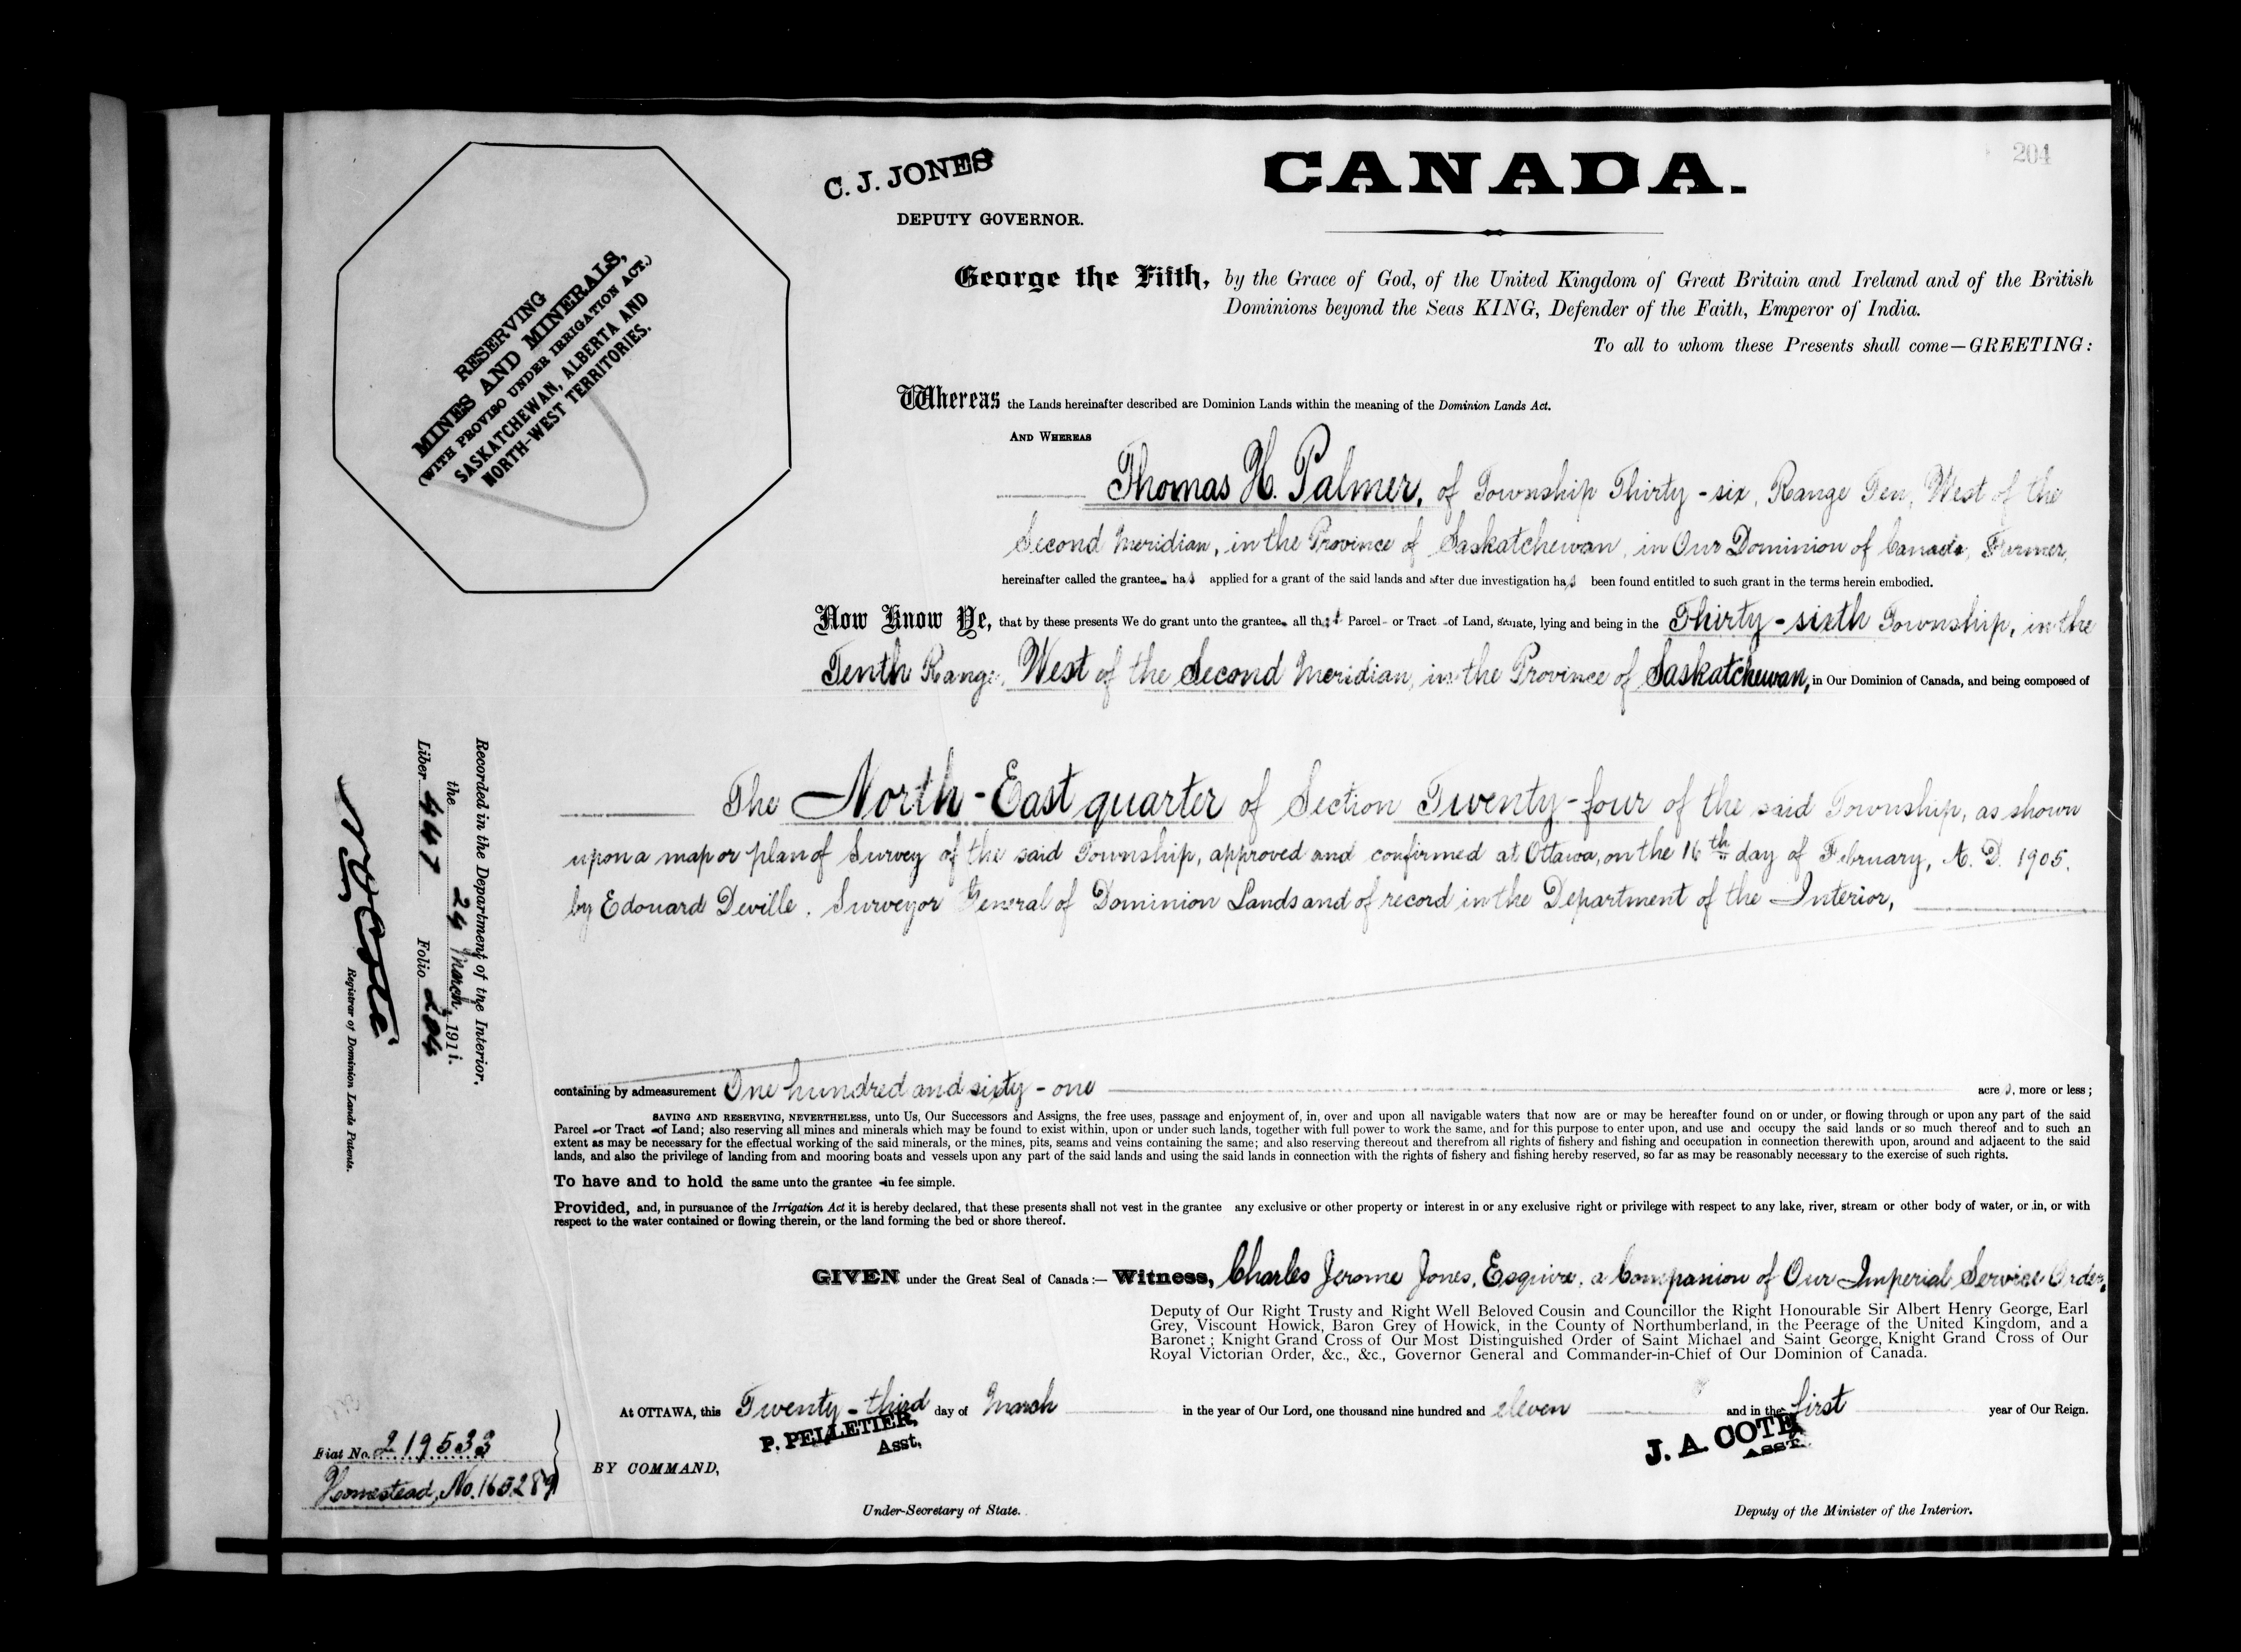 204
C. J. JONES
DEPUTY GOVERNOR.
CANADA.
RESERVING
MINES AND MINERALS,
(WITH PROVISO UNDER IRRIGATION ACT.)
SASKATCHEWAN, ALBERTA AND
NORTH-WEST TERRITORIES.
George the Fifth, by the Grace of God, of the United Kingdom of Great Britain and Ireland and of the British
Dominions beyond the Seas KING, Defender of the Faith, Emperor of India.
To all to whom these Presents shall come—GREETING:
Whereas the Lands hereinafter described are Dominion Lands within the meaning of the Dominion Lands Act.
AND WHEREAS
Thomas H. Palmer, of Township Thirty-six, Range Ten, West of the
Second Meridian, in the Province of Saskatchewan, in Our Dominion of Canada, Farmer,
hereinafter called the grantee has applied for a grant of the said lands and after due investigation has been found entitled to such grant in the terms herein embodied.
Now Know Ye, that by these presents We do grant unto the grantee all that Parcel or Tract of Land, situate, lying and being in the Thirty-sixth Township, in the
Tenth Range, West of the Second Meridian, in the Province of Saskatchewan, in Our Dominion of Canada, and being composed of
The North-East quarter of Section Twenty-four of the said Township, as shown
upon a map or plan of Survey of the said Township, approved and confirmed at Ottawa, on the 16th day of February, A. D. 1905,
by Edouard Deville, Surveyor General of Dominion Lands and of record in the Department of the Interior,
Recorded in the Department of the Interior,
the 24 March, 1911.
Liber 447 Folio 204
Registrar of Dominion Lands Patents.
containing by admeasurement One hundred and sixty-one acres, more or less;
SAVING AND RESERVING, NEVERTHELESS, unto Us, Our Successors and Assigns, the free uses, passage and enjoyment of, in, over and upon all navigable waters that now are or may be hereafter found on or under, or flowing through or upon any part of the said
Parcel or Tract of Land; also reserving all mines and minerals which may be found to exist within, upon or under such lands, together with full power to work the same, and for this purpose to enter upon, and use and occupy the said lands or so much thereof and to such an
extent as may be necessary for the effectual working of the said minerals, or the mines, pits, seams and veins containing the same; and also reserving thereout and therefrom all rights of fishery and fishing and occupation in connection therewith upon, around and adjacent to the said
lands, and also the privilege of landing from and mooring boats and vessels upon any part of the said lands and using the said lands in connection with the rights of fishery and fishing hereby reserved, so far as may be reasonably necessary to the exercise of such rights.
To have and to hold the same unto the grantee in fee simple.
Provided, and, in pursuance of the Irrigation Act it is hereby declared, that these presents shall not vest in the grantee any exclusive or other property or interest in or any exclusive right or privilege with respect to any lake, river, stream or other body of water, or in, or with
respect to the water contained or flowing therein, or the land forming the bed or shore thereof.
GIVEN under the Great Seal of Canada:— Witness, Charles Jerome Jones, Esquire, a Companion of Our Imperial Service Order,
Deputy of Our Right Trusty and Right Well Beloved Cousin and Councillor the Right Honourable Sir Albert Henry George, Earl
Grey, Viscount Howick, Baron Grey of Howick, in the County of Northumberland, in the Peerage of the United Kingdom, and a
Baronet; Knight Grand Cross of Our Most Distinguished Order of Saint Michael and Saint George, Knight Grand Cross of Our
Royal Victorian Order, &c., &c., Governor General and Commander-in-Chief of Our Dominion of Canada.
At OTTAWA, this Twenty-third day of March in the year of Our Lord, one thousand nine hundred and eleven and in the first year of Our Reign.
P. PELLETIER,
Asst.
J. A. COTE
ASST.
BY COMMAND,
Fiat No. 219533
Homestead, No. 165289
Under-Secretary of State.
Deputy of the Minister of the Interior.